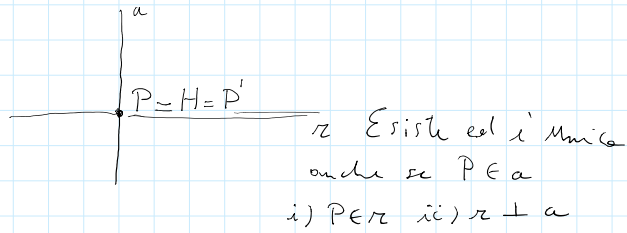 a
P=H=P'
r Esiste ed è unica
anche se P∈a
i) P∈r ii) r ⊥ a